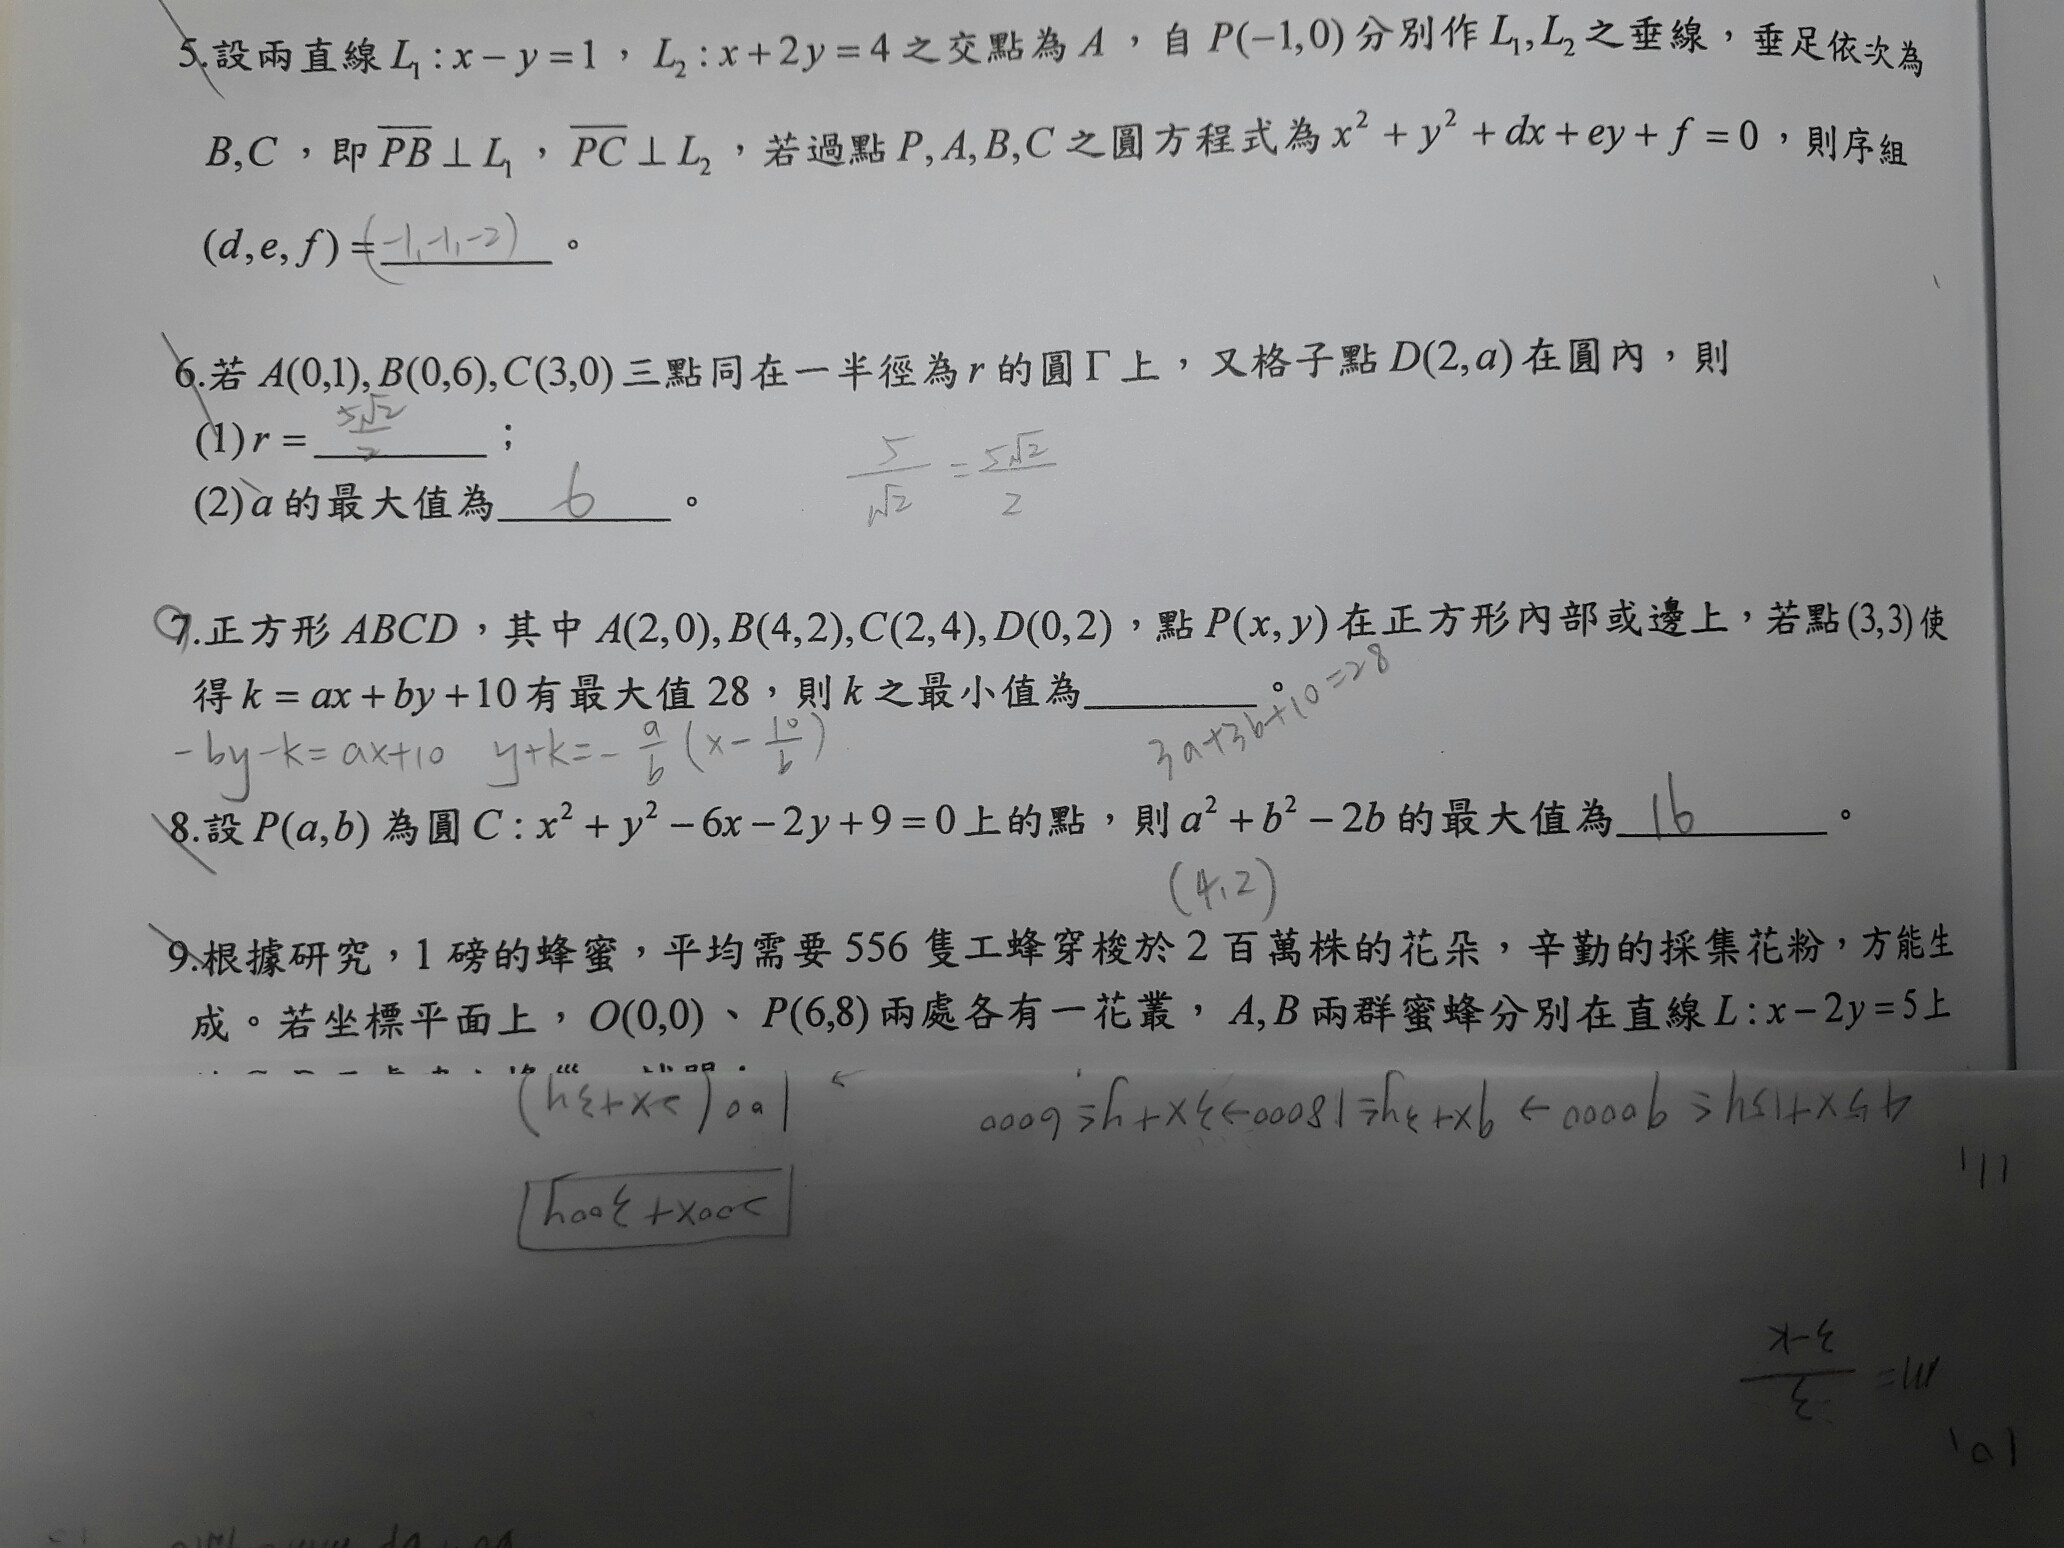 5.設兩直線 L₁:x−y=1,L₂:x+2y=4 之交點為 A,自 P(−1,0) 分別作 L₁,L₂ 之垂線,垂足依次為
B,C,即 PB⊥L₁,PC⊥L₂,若過點 P,A,B,C 之圓方程式為 x²+y²+dx+ey+f=0,則序組
(d,e,f)=(-1,-1,-2)。
6.若 A(0,1),B(0,6),C(3,0) 三點同在一半徑為 r 的圓 Γ 上,又格子點 D(2,a) 在圓內,則
(1) r = 5√2/2 ;
5/√2 = 5√2/2
(2) a 的最大值為 6 。
7.正方形 ABCD,其中 A(2,0),B(4,2),C(2,4),D(0,2),點 P(x,y) 在正方形內部或邊上,若點(3,3)使
得 k=ax+by+10 有最大值 28,則 k 之最小值為 。
3a+3b+10=28
-by-k=ax+10 y+k=-a/b(x-10/b)
8.設 P(a,b) 為圓 C:x²+y²−6x−2y+9=0 上的點,則 a²+b²−2b 的最大值為 16 。
(4,2)
9.根據研究,1 磅的蜂蜜,平均需要 556 隻工蜂穿梭於 2 百萬株的花朵,辛勤的採集花粉,方能生
成。若坐標平面上,O(0,0)、P(6,8) 兩處各有一花叢,A,B 兩群蜜蜂分別在直線 L:x−2y=5 上
10.
m=-3/3-k
11.
200x+300y
45x+15y≤90000→9x+3y≤18000→3x+y≤6000
→100(2x+3y)